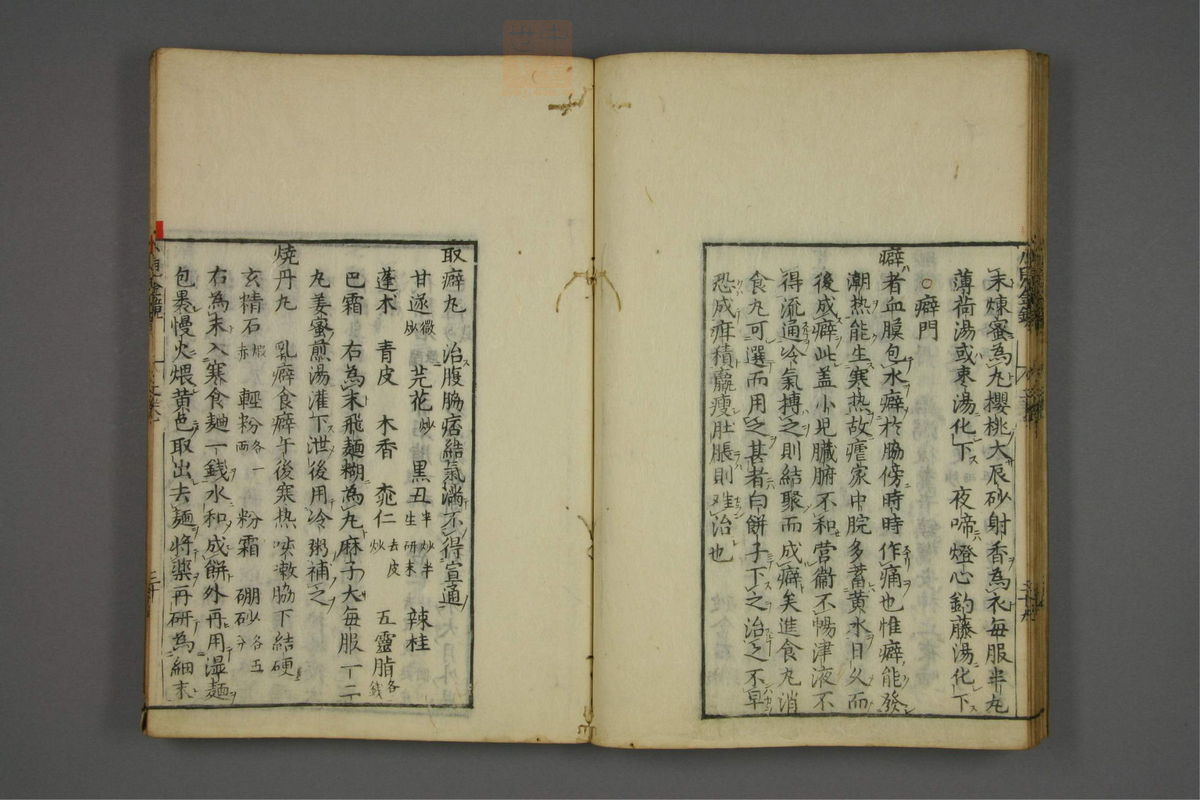 末煉蜜為丸櫻桃大辰砂射香為衣每服半丸
薄荷湯或棗湯化下 夜啼燈心釣藤湯化下
○癖門
癖者血膜包水癖於脇傍時時作痛也惟癖能發
潮熱能生寒熱故瘧家中脘多蓄黃水日久而
後成癖此盖小児臓腑不和营衞不暢津液不
得流通冷氣搏之則結聚而成癖矣進食丸消
食丸可選而用之甚者白餅子下之治之不早
恐成疳積羸瘦肚脹則难治也
取癖丸 治腹脇痞結氣満不得宣通
甘遂微炒 芫花炒 黒丑半炒半生研末 辣桂
蓬朮 青皮 木香 桃仁去皮炒 五靈脂各錢
巴霜 右為末飛麵糊為丸麻子大每服一二
丸姜蜜煎湯灌下泄後用冷粥補之
焼丹丸 乳癖食癖午後寒热咳嗽脇下結硬
玄精石煅赤 輕粉各一兩 粉霜 硼砂各五分
右為末入寒食麺一錢水和成餅外再用湿麺
包裹慢火煨黄色取出去麺將藥再研為細末